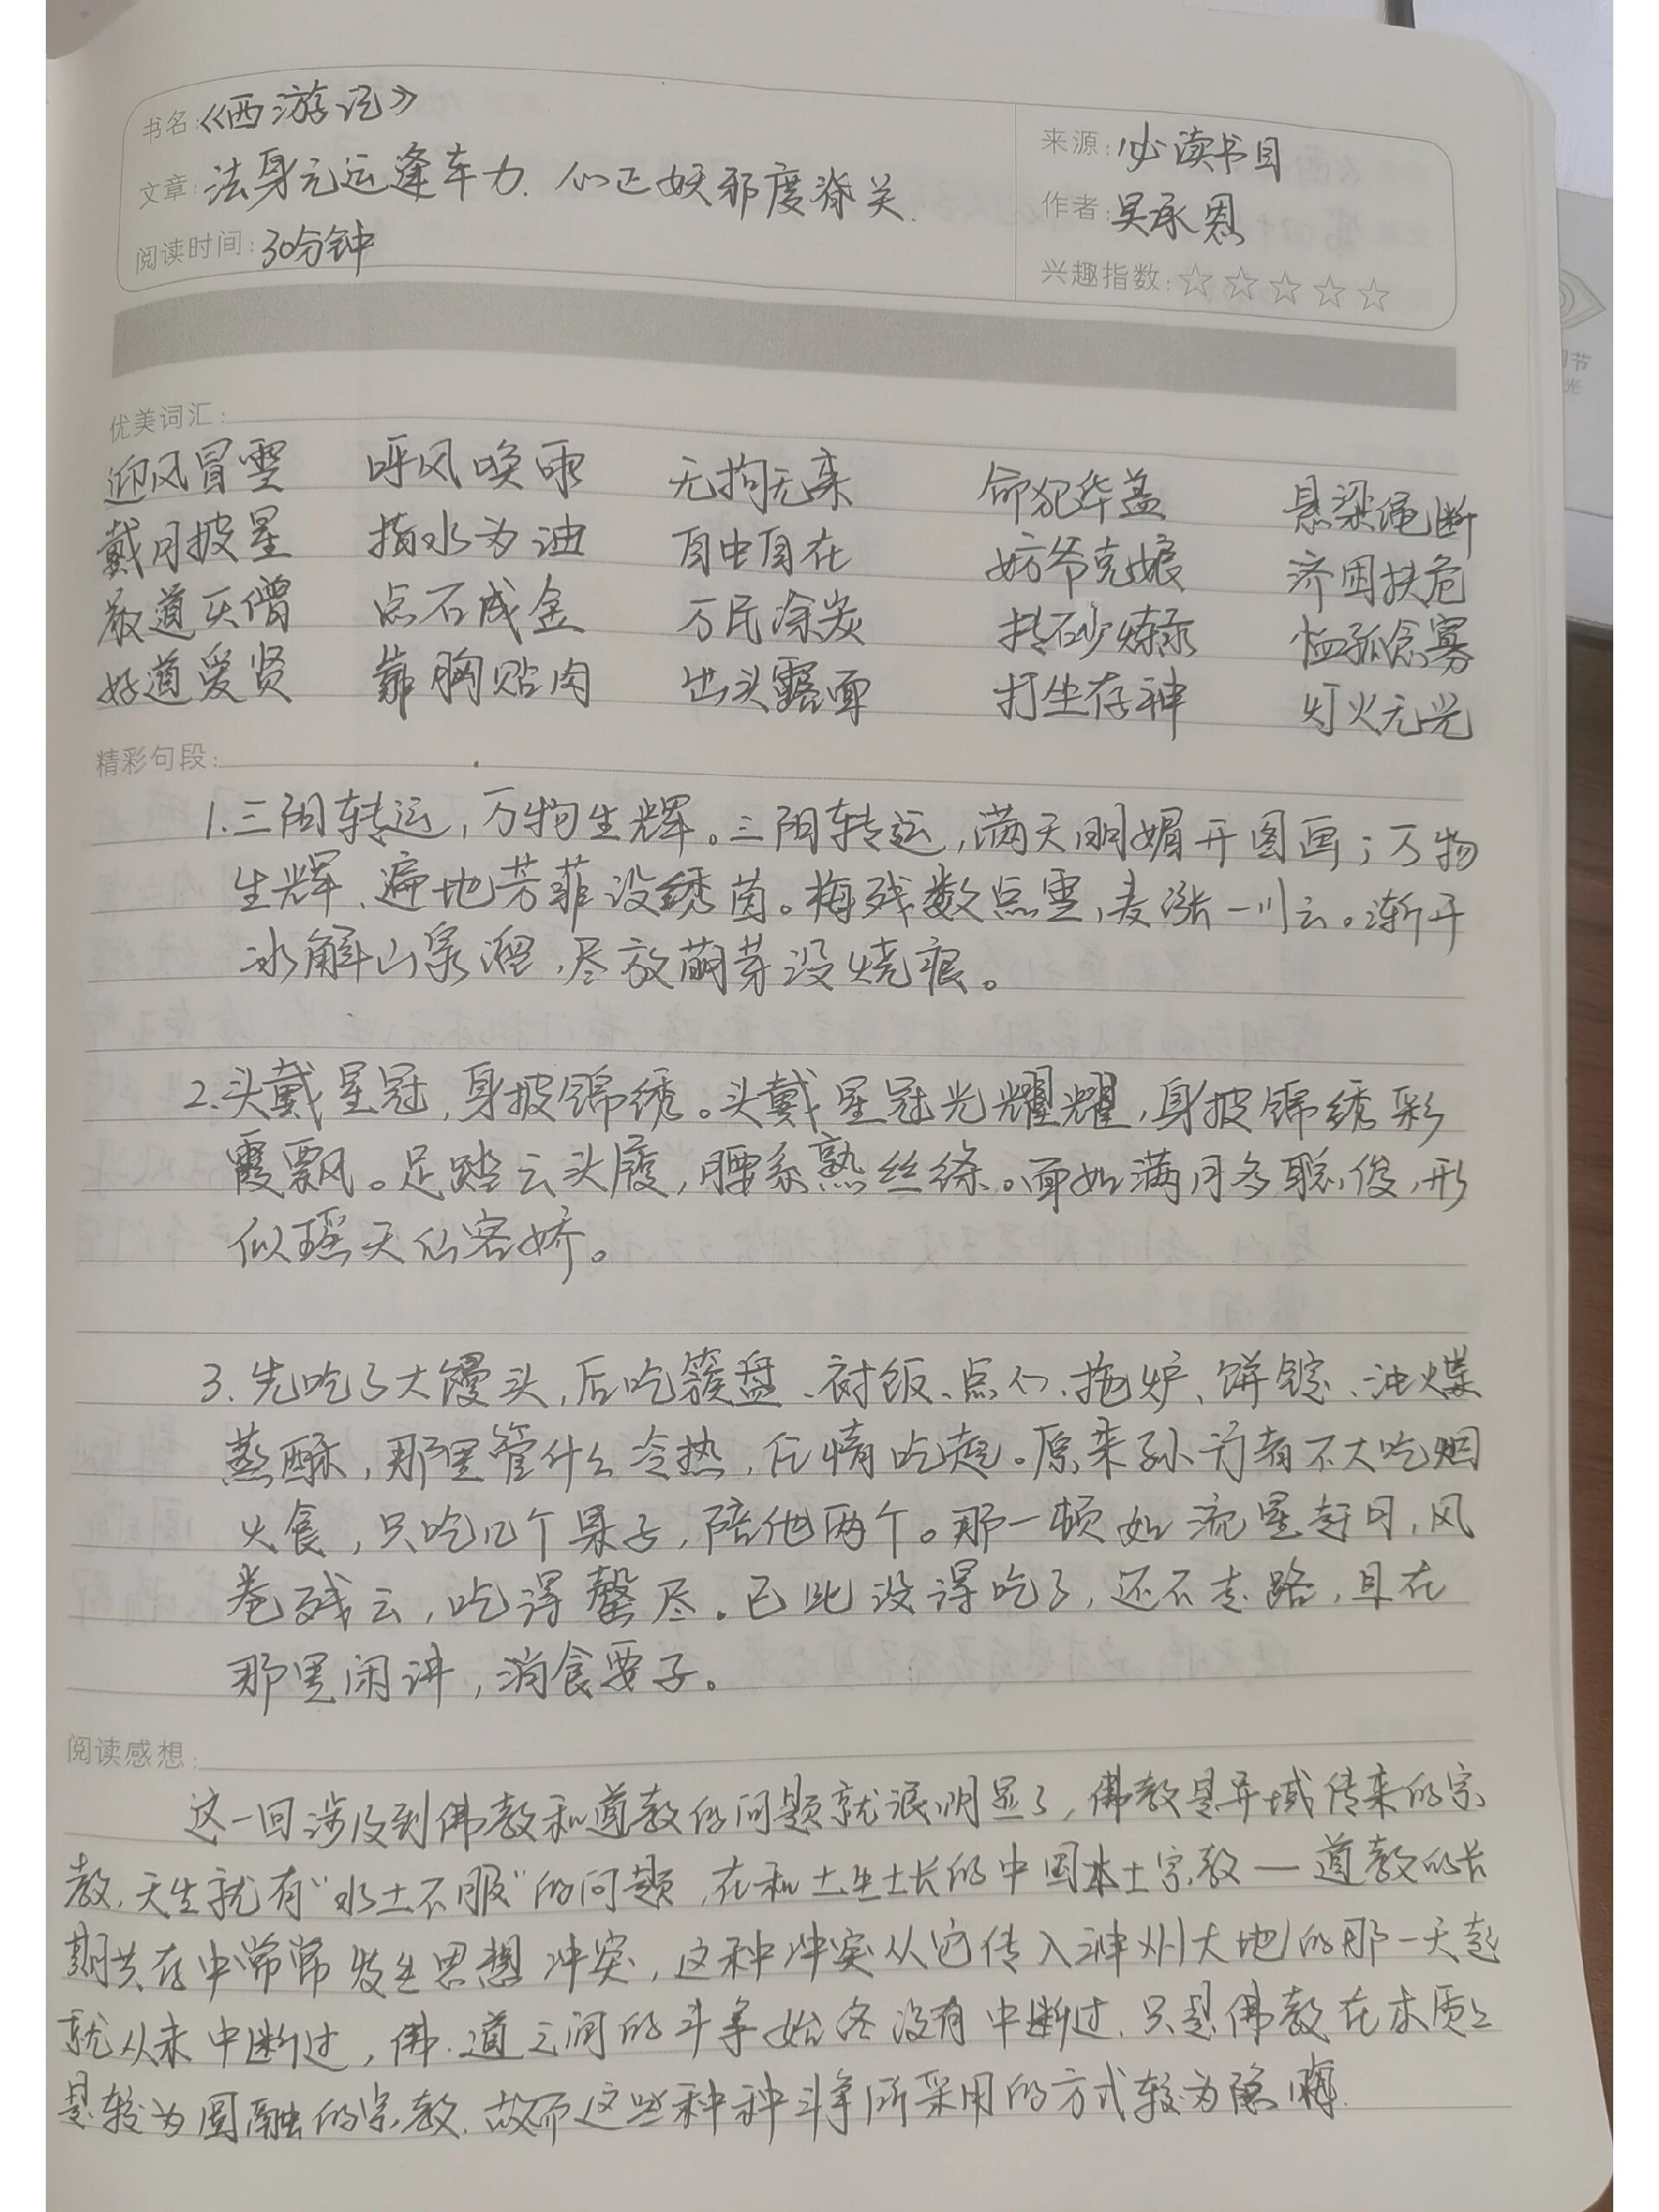 书名:《西游记》
来源:必读书目
文章:法身元运逢车力、心正妖邪度脊关.
作者:吴承恩
阅读时间:30分钟
兴趣指数:☆☆☆☆☆
优美词汇:
迎风冒雪 呼风唤雨 无拘无束 命犯华盖 悬梁绳断
戴月披星 指水为油 自由自在 妨爷克娘 济困扶危
敬道灭僧 点石成金 万民涂炭 抟砂炼汞 恤孤念寡
好道爱贤 靠胸贴肉 出头露面 打坐存神 灯火无光
精彩句段:
1.三阳转运,万物生辉。三阳转运,满天明媚开图画;万物
生辉、遍地芳菲设绣茵。梅残数点雪,麦涨一川云。渐开
冰解山泉溜,尽放萌芽没烧痕。
2.头戴星冠,身披锦绣。头戴星冠光耀耀,身披锦绣彩
霞飘。足踏云头履,腰系熟丝绦。面如满月多聪俊,形
似瑶天仙客娇。
3.先吃了大馒头,后吃簇盘、衬饭、点心、拖炉、饼锭、油煠
蒸酥,那里管什么冷热,任情吃起。原来孙行者不大吃烟
火食,只吃几个果子,陪他两个。那一顿如流星赶月,风
卷残云,吃得罄尽。已此没得吃了,还不走路,且在
那里闲讲,消食耍子。
阅读感想:
这一回涉及到佛教和道教的问题就很明显了,佛教是异域传来的宗
教,天生就有“水土不服”的问题,在和土生土长的中国本土宗教—道教的长
期共存中常常发生思想冲突,这种冲突从它传入神州大地的那一天起
就从未中断过,佛、道之间的斗争始终没有中断过,只是佛教在本质上
是较为圆融的宗教,故而这些种种斗争所采用的方式较为隐晦.